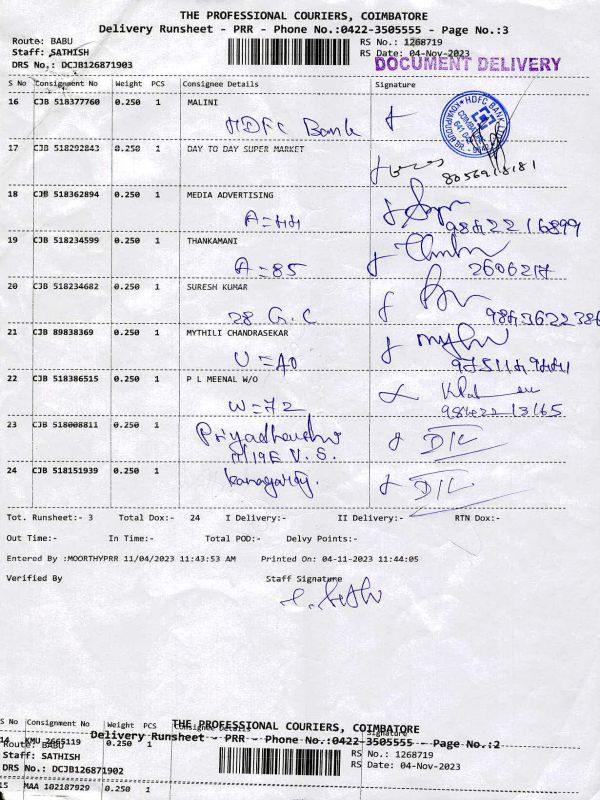 THE PROFESSIONAL COURIERS, COIMBATORE
Delivery Runsheet - PRR - Phone No.:0422-3505555 - Page No.:3
Route: BABU RS No.: 1268719
Staff: SATHISH RS Date: 04-Nov-2023
DOCUMENT DELIVERY
DRS No.: DCJB126871903
S No Consignment No Weight PCS Consignee Details Signature
16 CJB 518377760 0.250 1 MALINI
HDFC Bank
HDFC BANK
17 CJB 518292843 0.250 1 DAY TO DAY SUPER MARKET
8056918181
18 CJB 518362894 0.250 1 MEDIA ADVERTISING
A=44
9842216899
19 CJB 518234599 0.250 1 THANKAMANI
A=85 2606217
20 CJB 518234682 0.250 1 SURESH KUMAR
28 G.C
21 CJB 89838369 0.250 1 MYTHILI CHANDRASEKAR
U=40
22 CJB 518386515 0.250 1 P L MEENAL W/O
W=72 9842213165
23 CJB 518008811 0.250 1 D/L
24 CJB 518151939 0.250 1 D/L
Tot. Runsheet:- 3 Total Dox:- 24 I Delivery:- II Delivery:- RTN Dox:-
Out Time:- In Time:- Total POD:- Delvy Points:-
Entered By :MOORTHYPRR 11/04/2023 11:43:53 AM Printed On: 04-11-2023 11:44:05
Verified By Staff Signature
S No Consignment No Weight PCS Consignee Details Signature
THE PROFESSIONAL COURIERS, COIMBATORE
14 KMU 2665119 0.250 1
Delivery Runsheet - PRR - Phone No.:0422-3505555 - Page No.:2
Route: BABU RS No.: 1268719
Staff: SATHISH RS Date: 04-Nov-2023
DRS No.: DCJB126871902
15 MAA 102187929 0.250 1